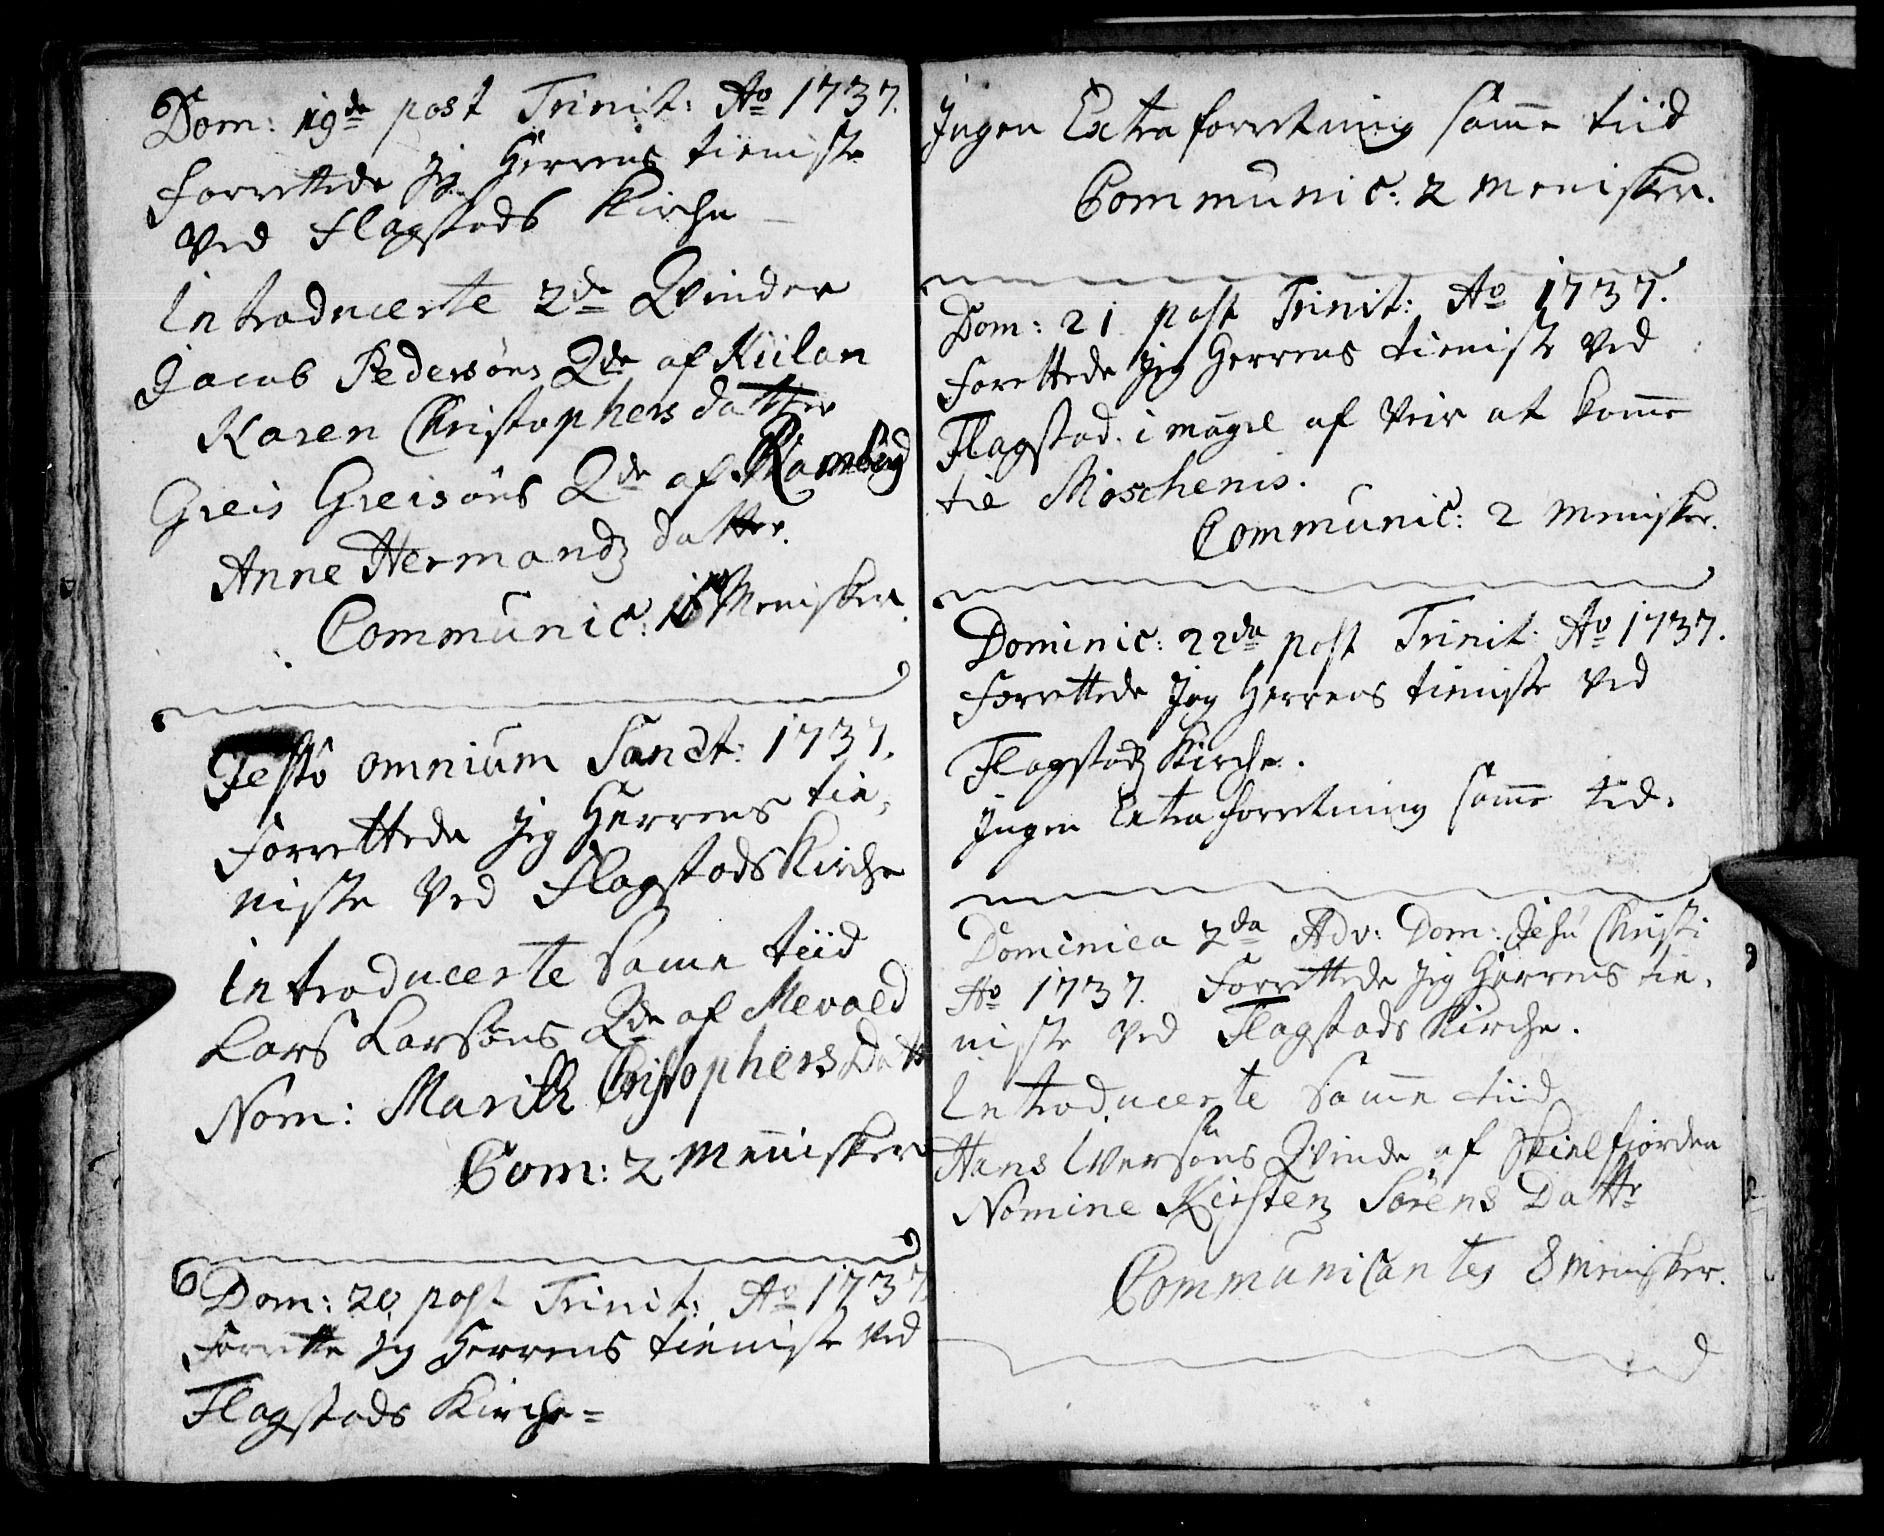 Dom: 19de post Trinit: Ao 1737.
Forrettede Jeg Herrens tieniste
Ved Flagstads Kirche
Introducerte 2de Qvinder
Jacob Pedersöns Qde af Kiilan
Karen Christophersdatter
Greis Greisöns Qde af Ramberg
Anne Hermandz datter.
Communic: Menisker.
Festo omnium Sanct: 1737.
Forrettede Jeg Herrens tie,
niste Ved Flagstads Kirche
Introducerte Same tiid
Lars Larsöns Qde af Mevold
Nom: Marith Christophers Datt
Com: 2 Menisker
Dom: 20 post Trinit: Ao 1737
Forrette Jeg Herrens tieniste Ved
Flagstads Kirche=
Ingen Extra forretning samme tiid
Communic: 2 Menisker.
Dom: 21 post Trinit: Ao 1737.
Forettede Jeg Herrens tieniste Ved
Flagstad. i mangel af Veir at komme
til Moschenis.
Communic: 2 Menisker.
Dominic: 22da post Trinit: Ao 1737.
Forrettede Jeg Herrens tieniste Ved
Flagstadz Kirche.
Ingen Extra forretning samme tid.
Dominica 2da Adv: Dom: Jesu Christi
Ao 1737. Forrettede Jeg Herrens tie,
niste Ved Flagstads Kirche.
Introducerte Samme tiid
Hans Iversöns Qvinde af Skielfiorden
Nomine Kirsten Sörens Dattr
Communicantes 8 Menisker.